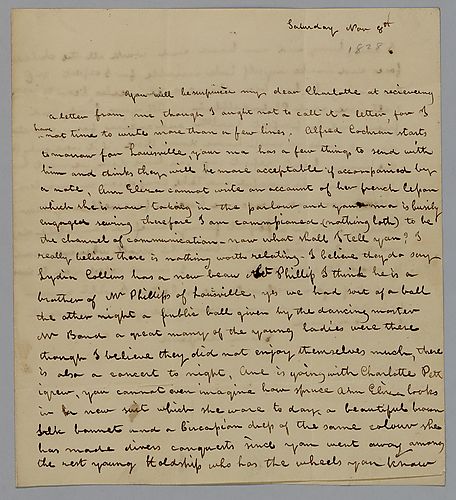 Saturday Nov 8th
1828.
You will be surprised my dear Charlotte at recieveing
a letter from me though I ought not to call it a letter, for I
have not time to write more than a few lines. Alfred Cochran starts
tomorrow for Louisville, your ma has a few things to send with
him and thinks they will be more acceptable if accompanied by
a note, Ann Eliza cannot write on account of her french lesson
which she is now taking in the parlour and your ma is busily
engaged sewing therefore I am commissioned (nothing loth) to be
the channel of communication - now what shall I tell you? I
really believe there is nothing worth relating. I believe they do say
Lydia Collins has a new beau Mr Phillip I think he is a
brother of Mr Phillips of Louisville, yes we had sort of a ball
the other night a public ball given by the dancing master
Mr Bond a great many of the young ladies were there
though I believe they did not enjoy themselves much, there
is also a concert to night, Ane is going with Charlotte Pett
igrew, you cannot even imagine how spruce Ann Eliza looks
in her new suit which she wore to day a beautiful brown
silk bonnet and a Circapian dress of the same colour she
has made divers conquests since you went away among
the rest young Holdship who has the wheels you know